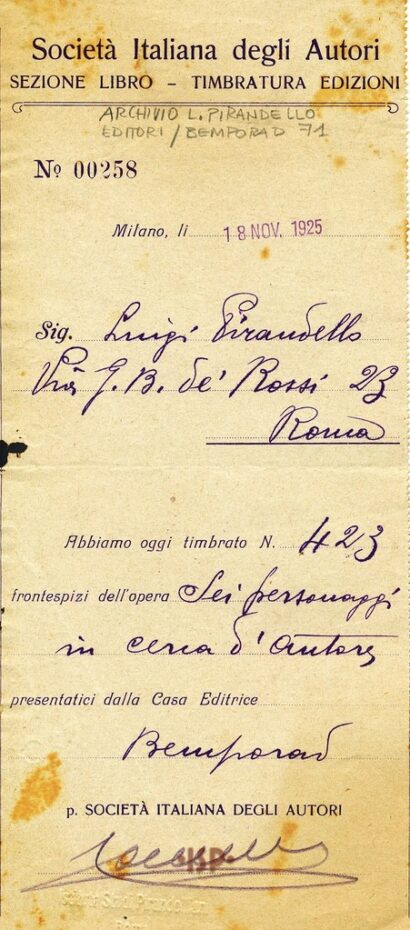 Società Italiana degli Autori
SEZIONE LIBRO - TIMBRATURA EDIZIONI
ARCHIVIO L. PIRANDELLO
EDITORI / BEMPORAD 71
No 00258
Milano, li 18 NOV. 1925
Sig. Luigi Pirandello
Via G. B. de' Rossi 23
Roma
Abbiamo oggi timbrato N. 423
frontespizi dell'opera Sei personaggi
in cerca d'autore
presentatici dalla Casa Editrice
Bemporad
p. SOCIETÀ ITALIANA DEGLI AUTORI